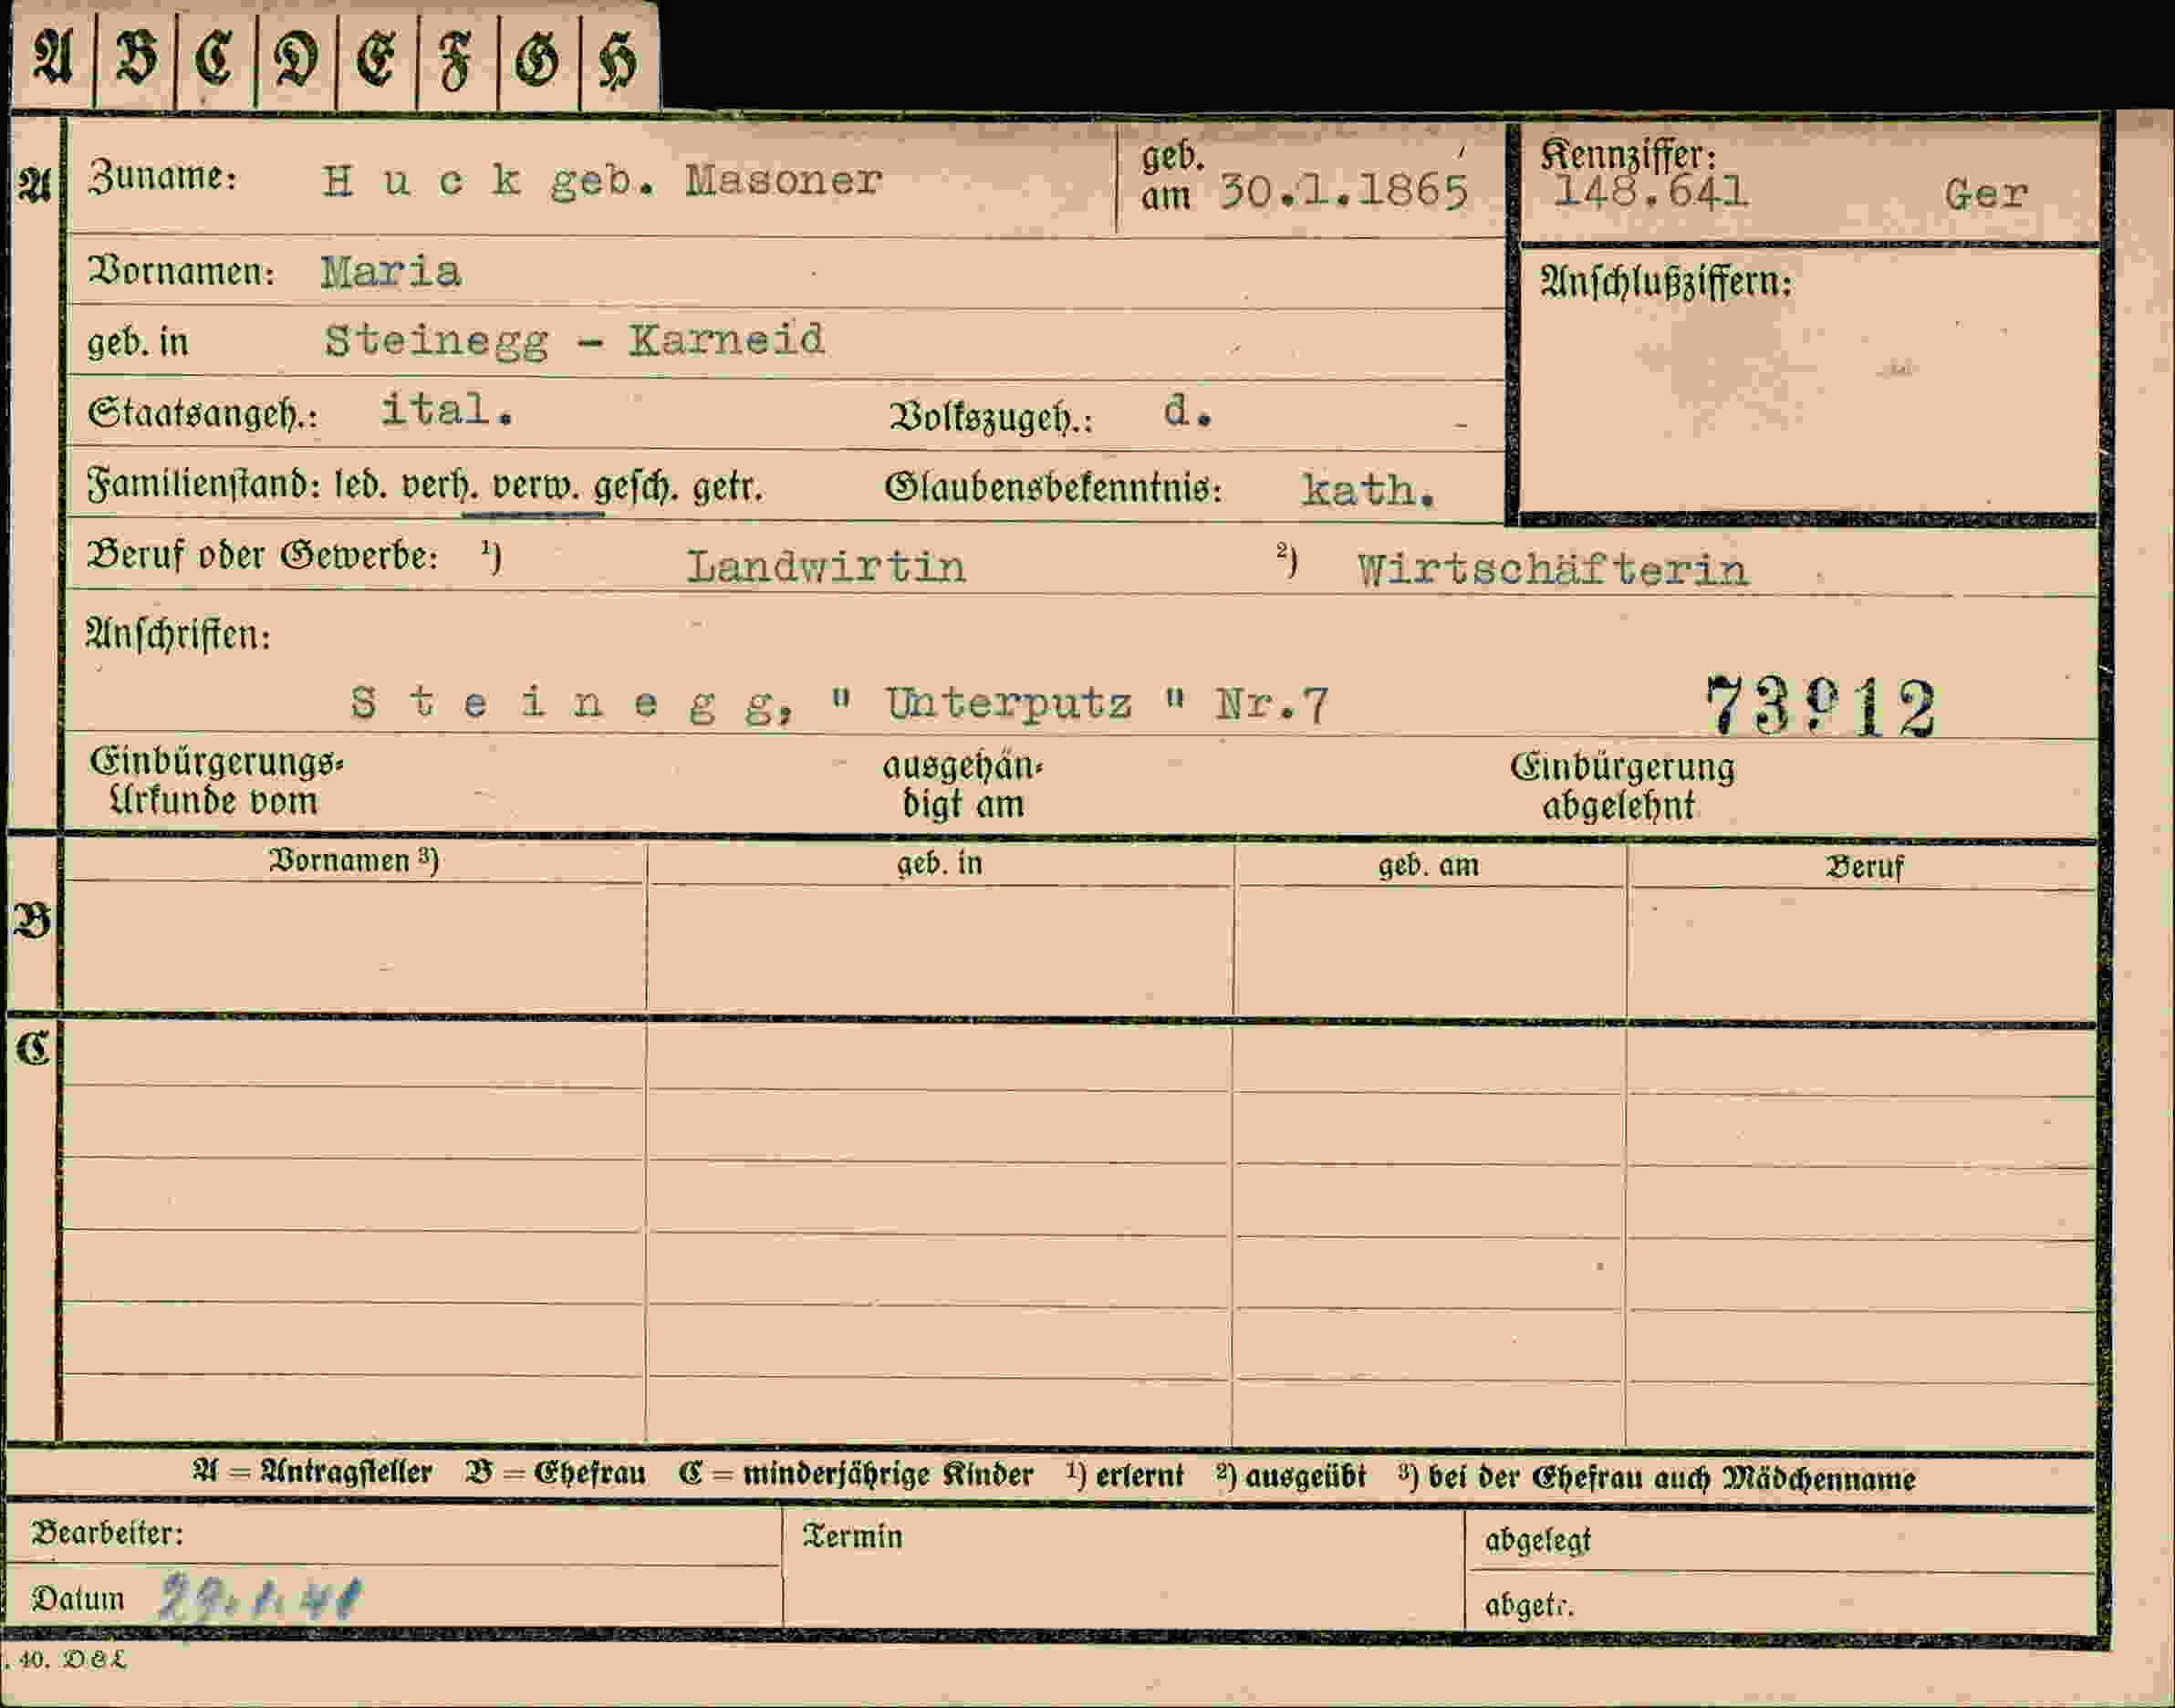 A B C D E F G H
A Zuname: H u c k geb. Masoner geb. am 30.1.1865 Kennziffer: 148.641 Ger
Vornamen: Maria Anschlußziffern:
geb. in Steinegg - Karneid
Staatsangeh.: ital. Volkszugeh.: d.
Familienstand: led. verh. verw. gesch. getr. Glaubensbekenntnis: kath.
Beruf oder Gewerbe: ¹) Landwirtin ²) Wirtschäfterin
Anschriften:
S t e i n e g g, " Unterputz " Nr.7 73912
Einbürgerungs- ausgehän- Einbürgerung
Urkunde vom digt am abgelehnt
Vornamen ³) geb. in geb. am Beruf
B
C
A = Antragsteller B = Ehefrau C = minderjährige Kinder ¹) erlernt ²) ausgeübt ³) bei der Ehefrau auch Mädchenname
Bearbeiter: Termin abgelegt
Datum 29.1.41 abgetr.
. 40. D&L